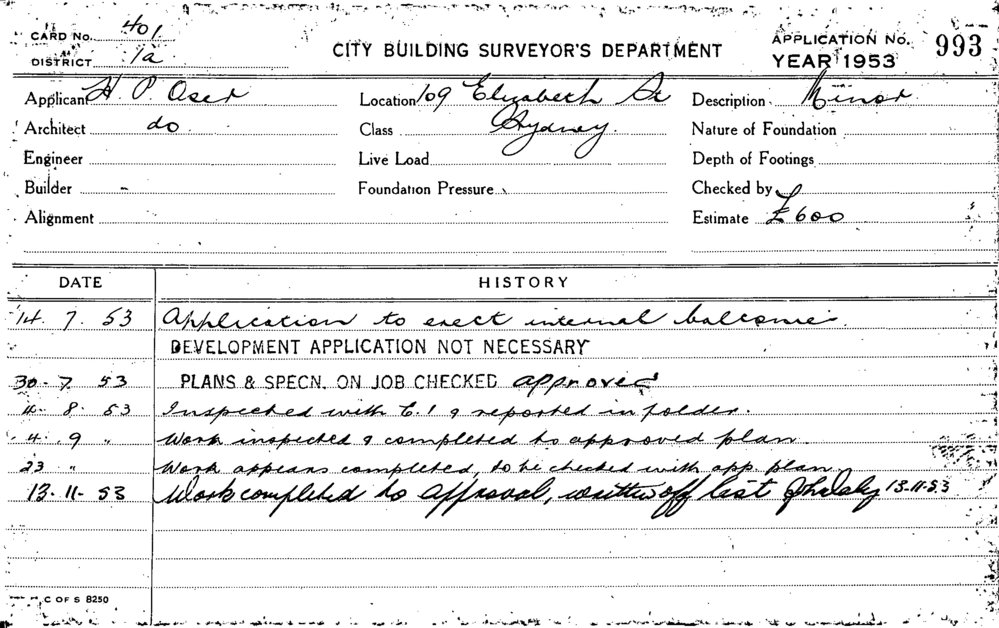 CARD No. 401
DISTRICT 1a
CITY BUILDING SURVEYOR'S DEPARTMENT
APPLICATION No. 993
YEAR 1953
Applicant H. P. Oser
Location 109 Elizabeth St
Description Minor
Architect do
Class Sydney.
Nature of Foundation
Engineer
Live Load
Depth of Footings
Builder -
Foundation Pressure
Checked by
Alignment
Estimate £600
DATE HISTORY
14. 7. 53 Application to erect internal balconie.
DEVELOPMENT APPLICATION NOT NECESSARY
30-7 53 PLANS & SPECN. ON JOB CHECKED approved
4. 8. 53 Inspected with C.I & reported in folder.
4. 9 " Work inspected & completed to approved plan.
23 " Work appears completed, to be checked with app. plan
13-11-53 Work completed to approval, written off list 13-11-53
C OF S 8250